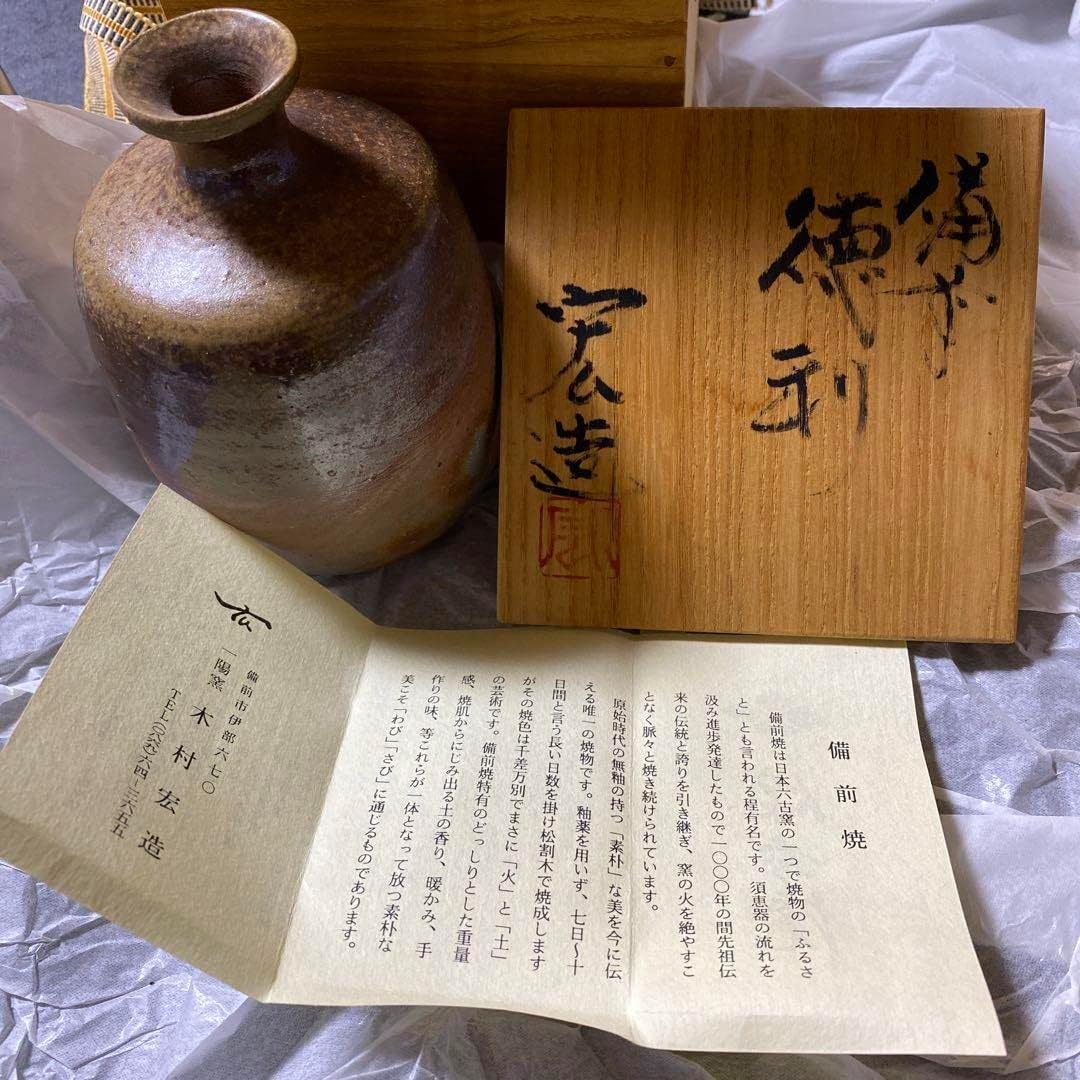 備前
徳利
宏造
備前焼
備前焼は日本六古窯の一つで焼物の「ふるさ
と」とも言われる程有名です。須恵器の流れを
汲み進歩発達したもので一〇〇〇年の間先祖伝
来の伝統と誇りを引き継ぎ、窯の火を絶やすこ
となく脈々と焼き続けられています。
原始時代の無釉の持つ「素朴」な美を今に伝
える唯一の焼物です。釉薬を用いず、七日〜十
日間と言う長い日数を掛け松割木で焼成します
がその焼色は千差万別でまさに「火」と「土」
の芸術です。備前焼特有のどっしりとした重量
感、焼肌からにじみ出る土の香り、暖かみ、手
作りの味、等これらが一体となって放つ素朴な
美こそ「わび」「さび」に通じるものであります。
備前市伊部六七〇
一陽窯 木村宏造